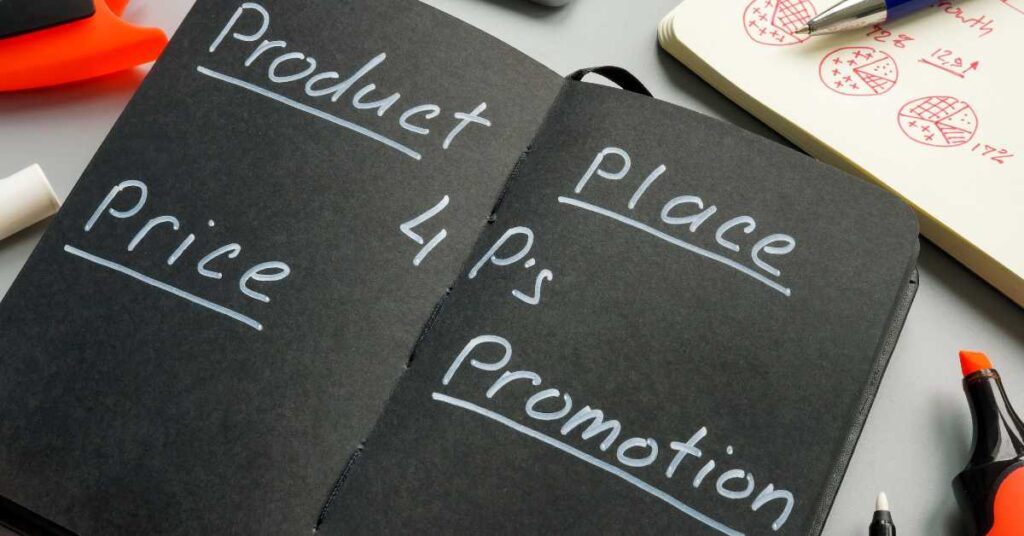 Product
Price
4 P's
Place
Promotion
growth
42%
12,9
17%